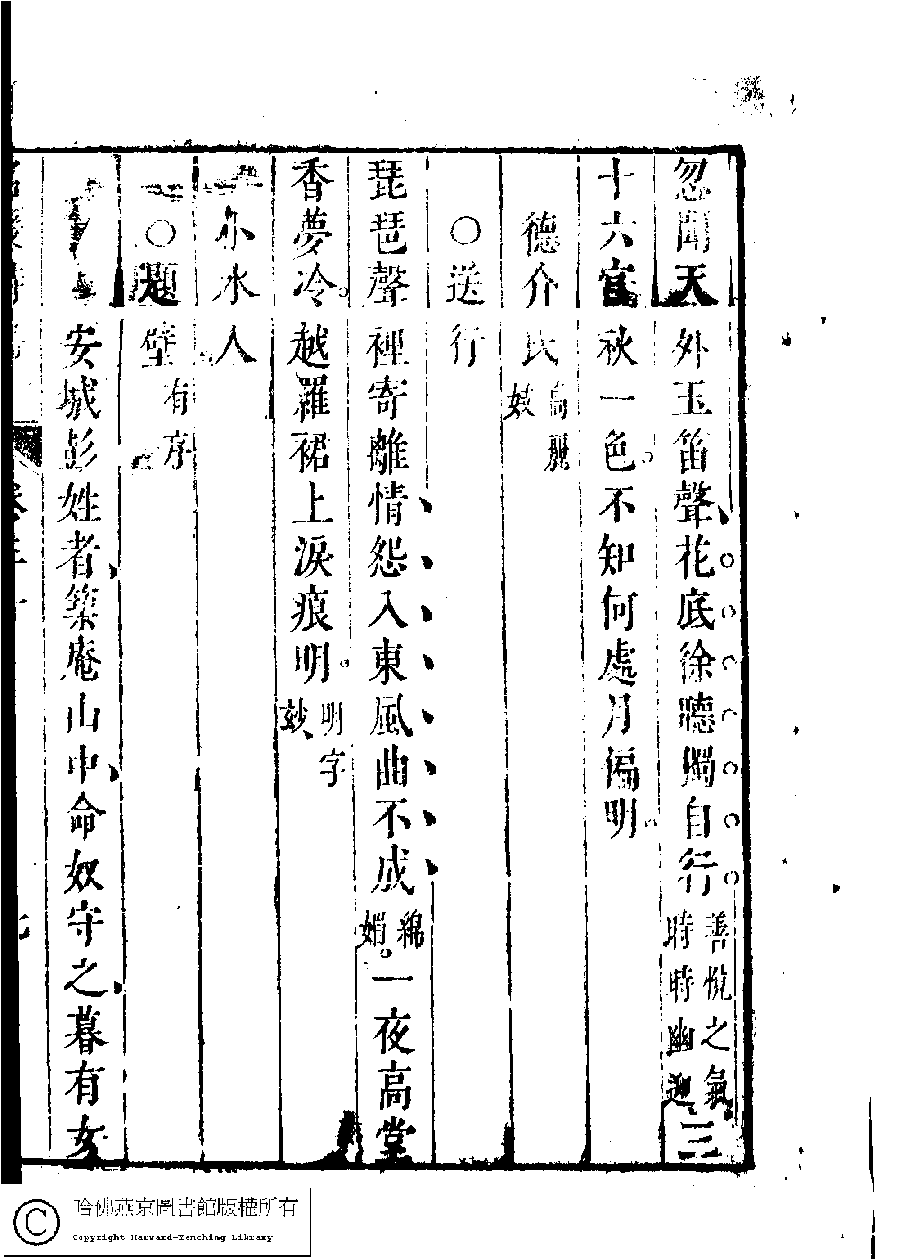 忽聞天外玉笛聲花底徐聽獨自行善悅之氣時時幽迥三
十六宮秋一色不知何處月偏明
德介氏高麗妓
○送行
琵琶聲裡寄離情怨入東風曲不成綿媚一夜高堂
香夢冷越羅裙上淚痕明明字妙
小水人
○題壁有序
安城彭姓者築庵山中命奴守之暮有女
哈佛燕京圖書館版權所有
Copyright Harvard-Yenching Library